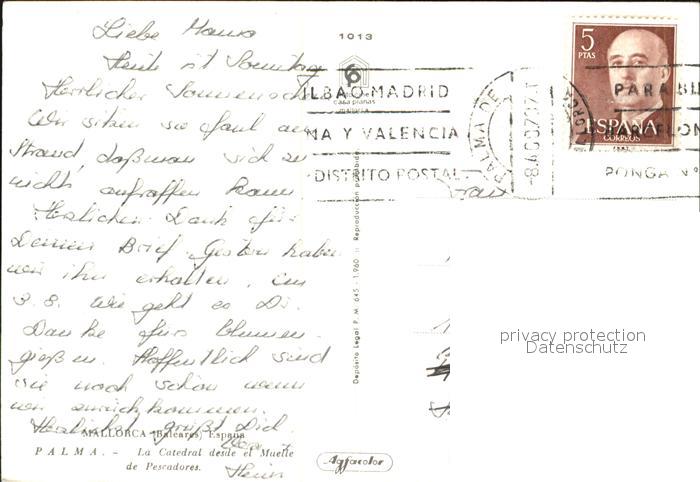 Liebe Mama
Heute ist Sonntag
Herrlicher Sonnensch
Wir sitzen so faul am
Strand, daßman sich zu
nichts aufraffen kann
Herzlichen Dank für
Deinen Brief. Gestern haben
wir ihn erhalten, am
3.8. Wie geht es Dir.
Danke fürs blumen-
gießen. Hoffentlich sind
sie noch schön wenn
wir zurückkommen.
Herzlichst grüßt Dich
MALLORCA (Baleares) España
PALMA. - La Catedral desde el Muelle
de Pescadores.
Heinz
1013
casa planas
mallorca
Depósito Legal P. M. 645 - 1.960 Reproducción prohibida
Agfacolor
ILBAO-MADRID
NA Y VALENCIA
DISTRITO POSTAL
PALMA DE
5
PTAS
ESPAÑA
CORREOS
PARA BI
PONGA Nº
privacy protection
Datenschutz